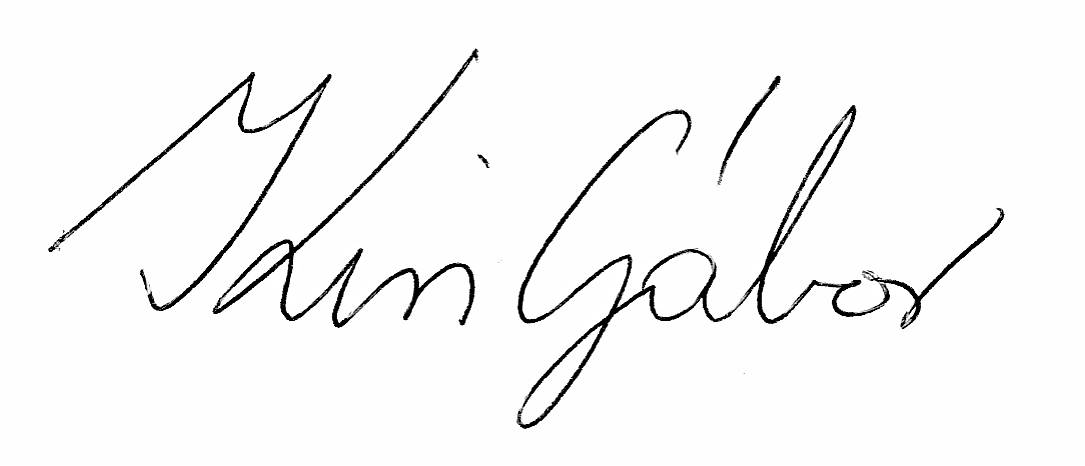 Kiss Gábor